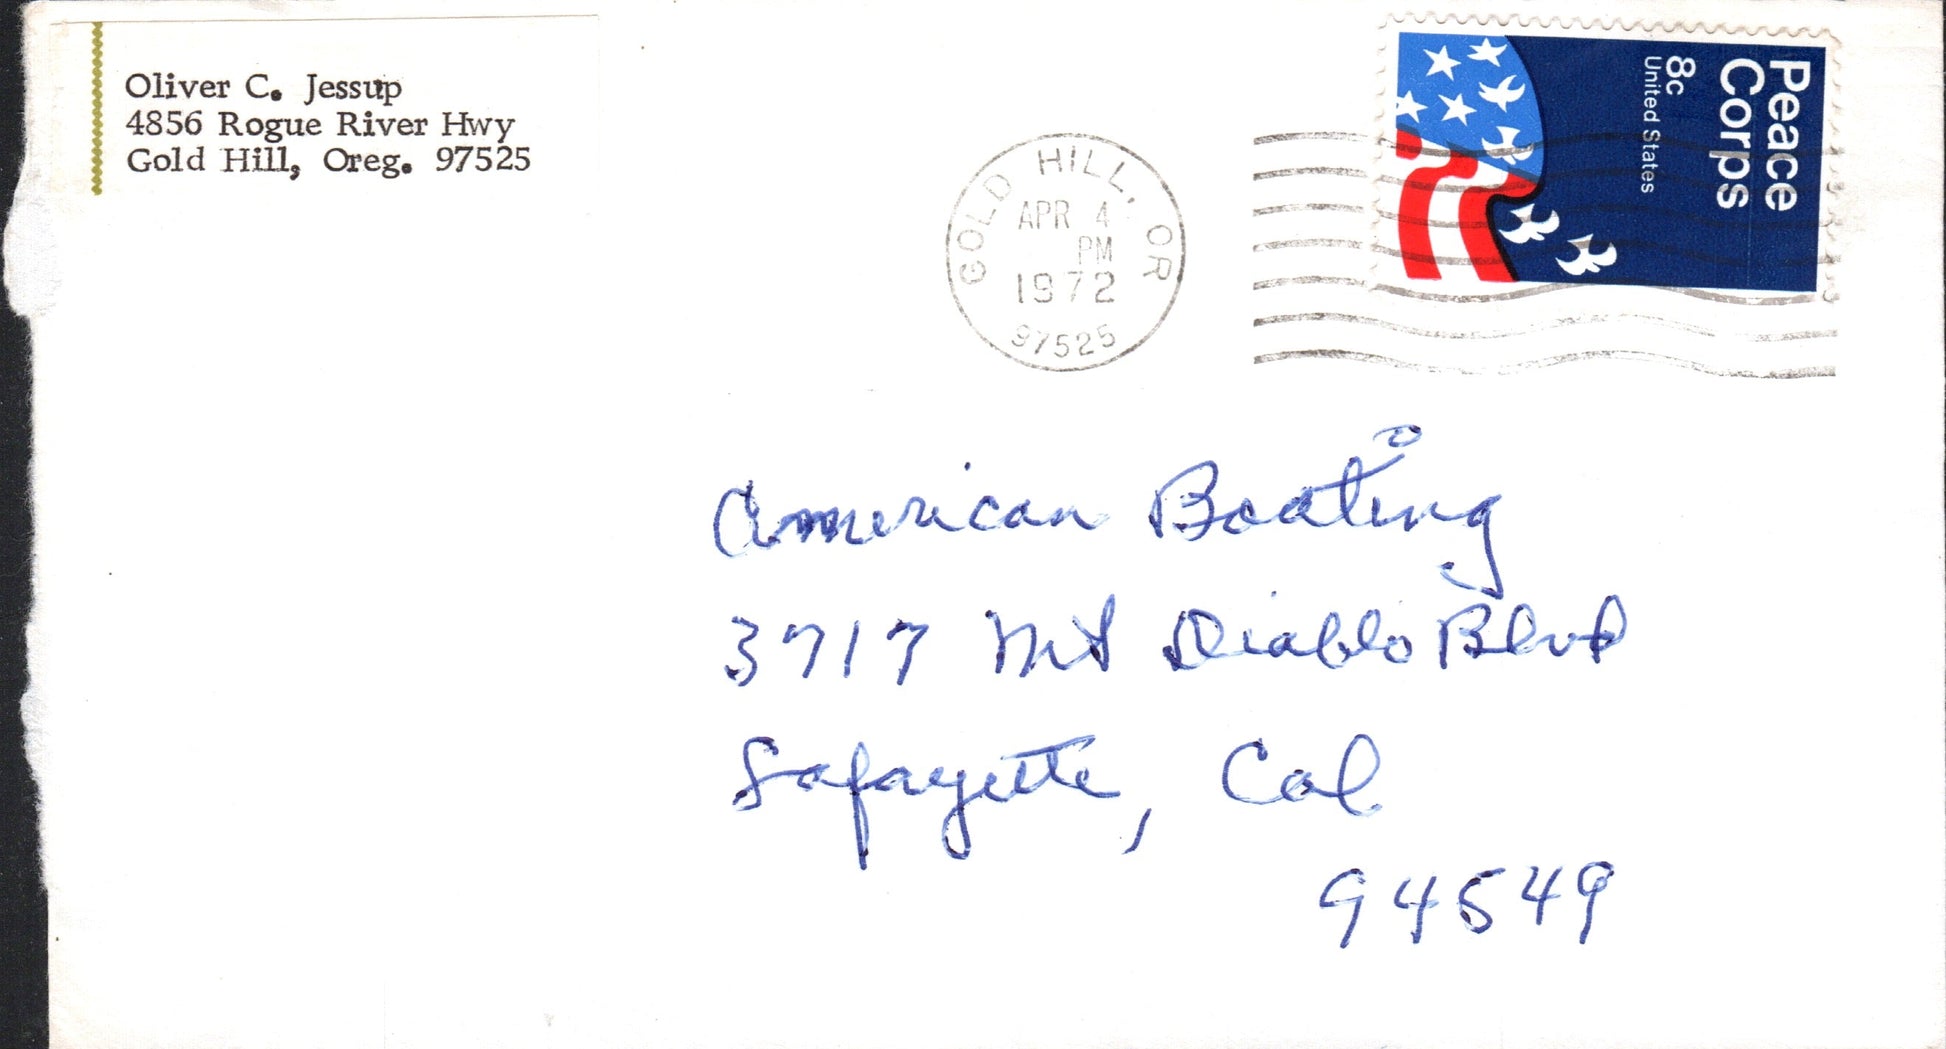 Oliver C. Jessup
4856 Rogue River Hwy
Gold Hill, Oreg. 97525
GOLD HILL, OR
APR 4
PM
1972
97525
Peace
Corps
8c
United States
American Boating
3717 Mt Diablo Blvd
Lafayette, Cal
94549